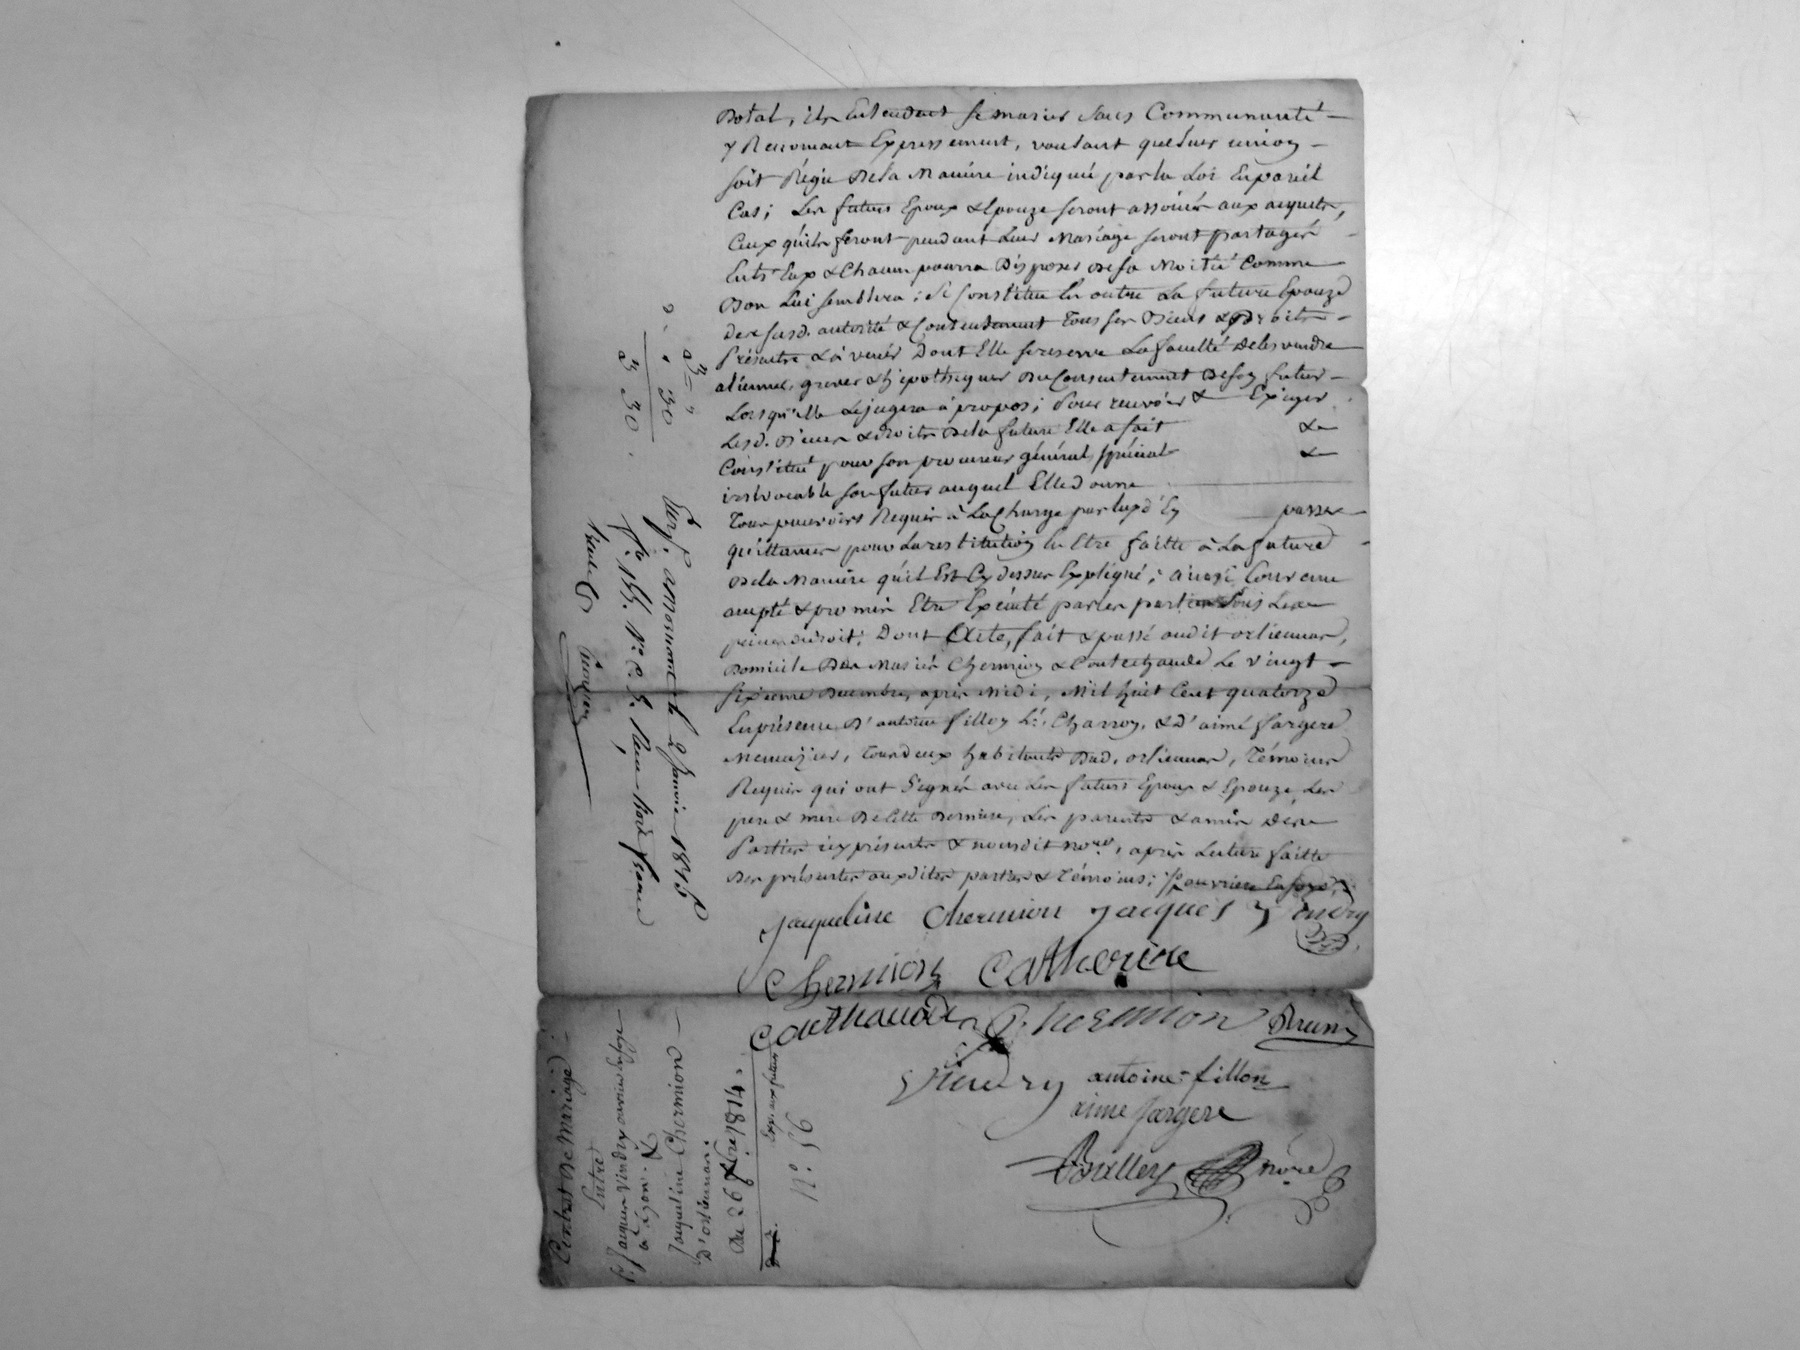 Dotal, ils Entendent se marier sans Communauté
y Renonçant Expressement, voulant que leur union
soit Régie De la Maniére indiquée par la Loi En pareil
Cas; Les futurs Epoux & Epouze seront associés aux acquets,
Ceux qu'ils feront pendant Leur Mariage seront partagés
Entr'Eux & Chacun pourra Disposer De sa Moitié Comme
Bon Lui semblera; Se Constitue En outre La future Epouze
de susd. autorité & Consentement Tous ses Biens & Droits
Présents & à venir Dont Elle se reserve La faculté De les vendre
aliener, grever & hipothequer Du Consentement De son futur
Lorsqu'elle Le jugera à propos; Pour recevoir & Exiger
Lesd. Biens & droits De la future Elle a fait &
Constitué pour son procureur général spécial &
irrévocable son futur auquel Elle donne
Tous pouvoirs Requis à La Charge par lui d'En passer
quittances pour La restitution En Etre faitte à La future
De la Maniére qu'il Est Cy dessus Expliqué; ainsi Convenu
accepté & promis Etre Exécuté par les parties sous Les
peines de droit; Dont Acte, fait & passé audit orliennas,
Domicile Des Mariés Chermion & Coutechaude Le vingt
sixieme Decembre, après Midi, Mil huit Cent quatorze
En présence D'antoine fillon Charron, & D'aimé fargere
Menuizier, Tous deux habitants Dud. orliennas, Témoins
Requis qui ont Signé avec Les futurs Epoux & Epouze, Les
pere & mere De Cette Derniere, Les parents & amis Des
Parties icy présents & nousdit nore, après Lecture faitte
Des présentes auxdites parties & Témoins;
Jacqueline Chermion Jacques Vindry
Chermion Catherine
Chermion Brun
Vindry antoine fillon
aime fargere
nore
2 30
2 30
Enrg. a Mornant le 2 Janvier 1815
Contrat De Mariage
Entre
Sr. Jacques Vindry
à Lyon &
Jacqueline Chermion
D'orliennas.
Du 26 Xbre 1814.
Exp. aux futurs
N°. 56